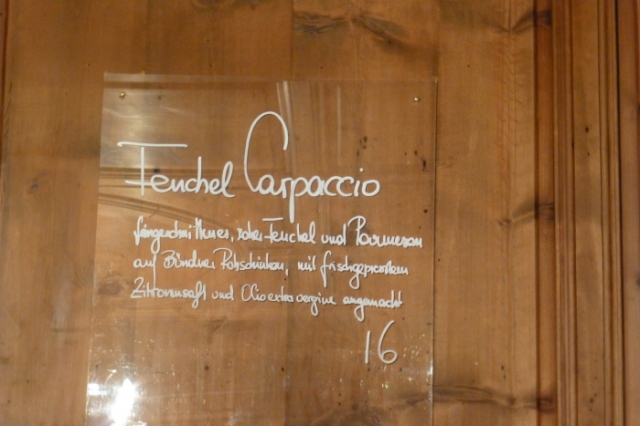 Fenchel Carpaccio
feingeschnittener, roher Fenchel und Parmesan
auf Bündner Rohschinken, mit frischgepresstem
Zitronensaft und Olio extra vergine angemacht
16